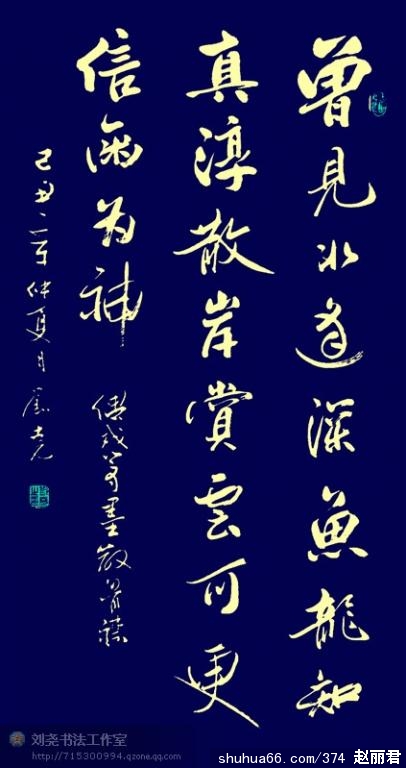 曾見水逢深魚龍知
真淳散岸賞雲何更
信無为神
己丑年仲夏月
刘尧书法工作室
http://715300994.qzone.qq.com
shuhua66.com/374 赵丽君